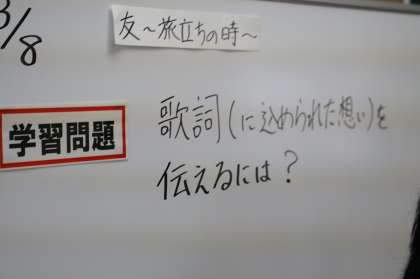 3/8
友～旅立ちの時～
学習問題
歌詞(に込められた想い)を
伝えるには？